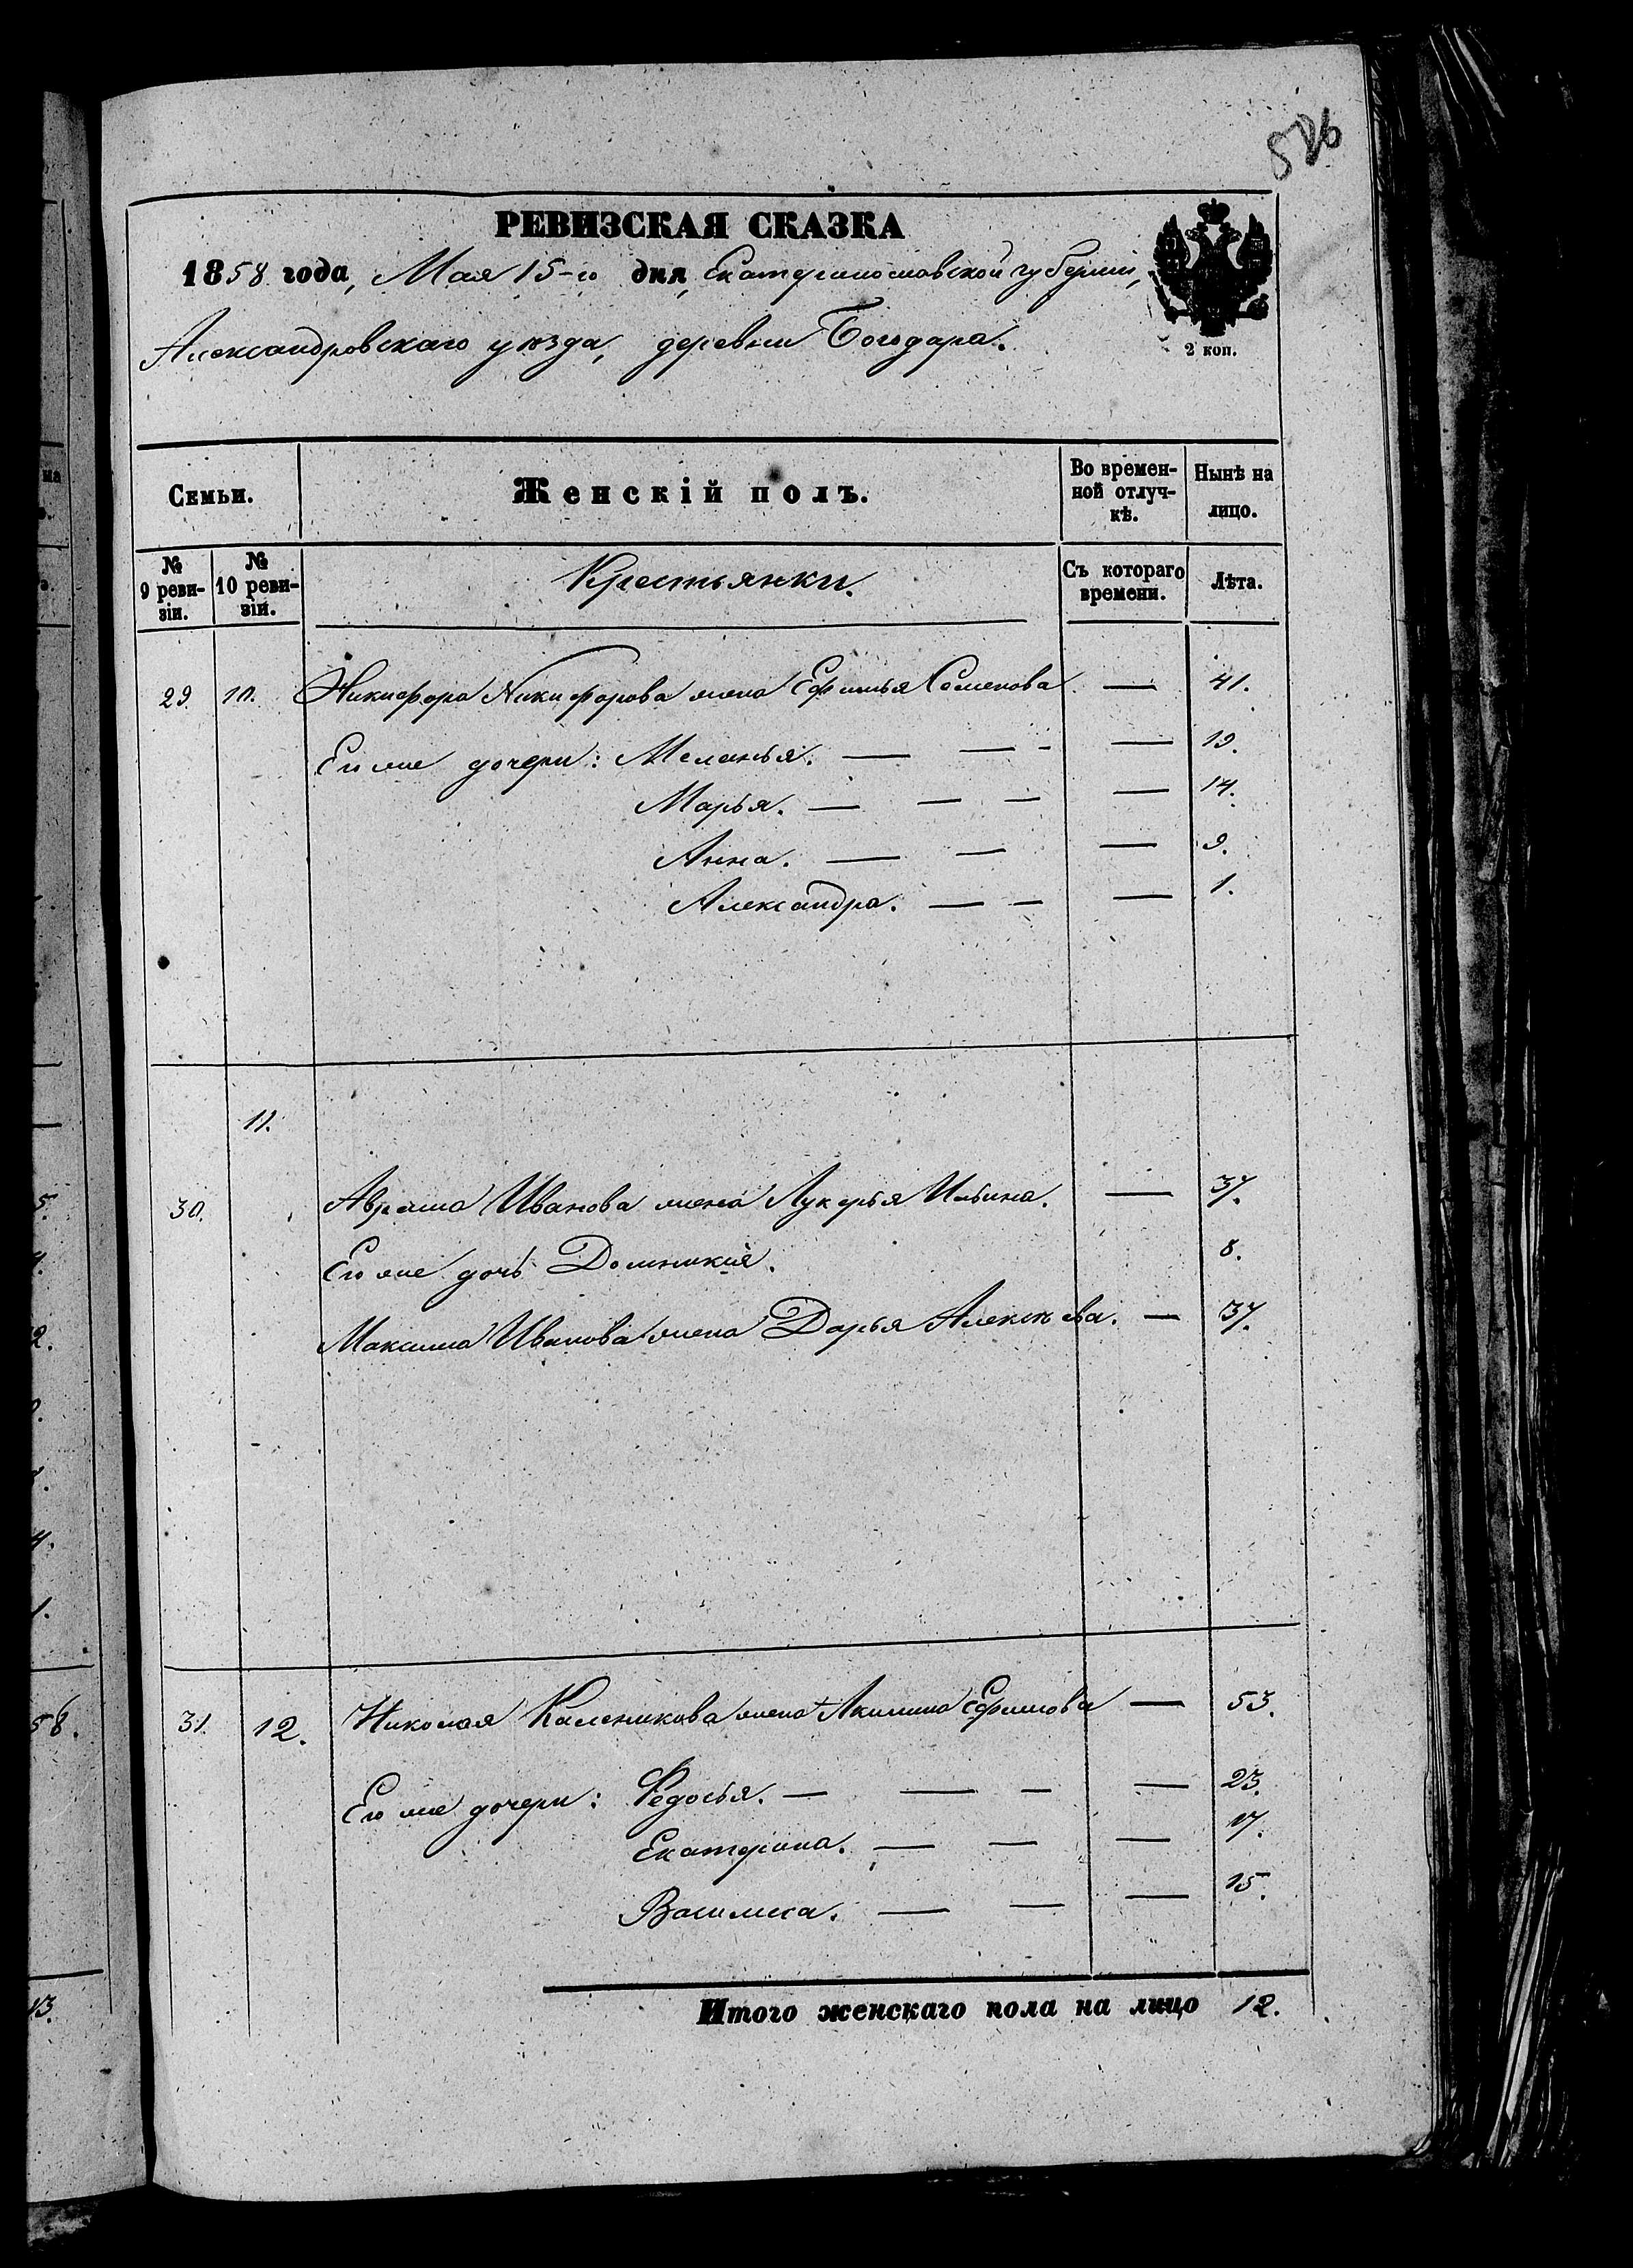 526
РЕВИЗСКАЯ СКАЗКА
1858 года, Мая 15-го дня, Екатеринославской губерніи,
Александровскаго уѣзда, деревни Богодара.
2 коп.
Семьи. Женскій полъ. Во времен-ной отлуч-кѣ. Нынѣ на лицо.
№ 9 реви-зіи. № 10 реви-зіи. Крестьянки. Съ котораго времени. Лѣта.
29. 10. Никифора Никифорова жена Ефимья Семенова — 41.
Его же дочери: Меланья. — — - — 19.
Марья. — — — — 14.
Анна. — — — 9.
Александра. — — — 1.
11.
30. Абрама Иванова жена Лукерья Ильина. — 37.
Его же дочь Домникія. 8.
Максима Иванова жена Дарья Алексѣева. — 37.
31. 12. Николая Каленикова жена Акилина Ефимова — 53.
Его же дочери: Федосья. — — — — 23.
Екатерина. — — — 17.
Василиса. — — — 15.
Итого женскаго пола на лицо 12.
5.
4.
2.
4.
1.
58.
13.